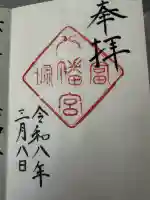 奉拝
八幡宮
令和八年
三月八日